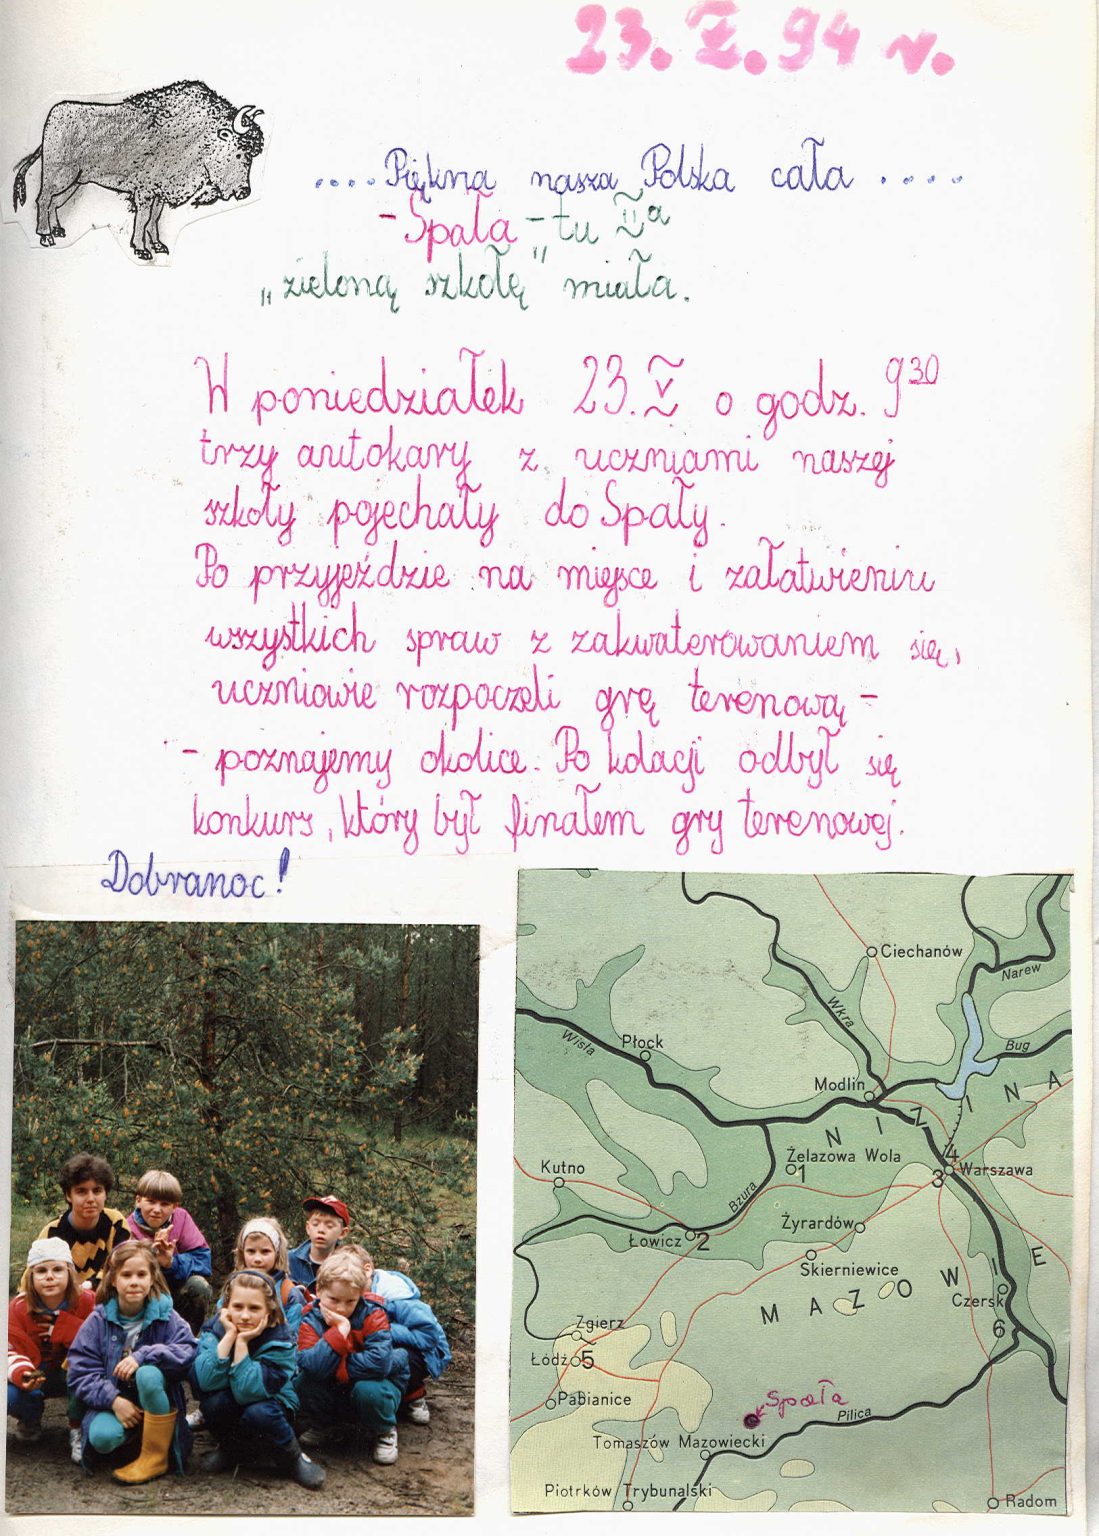 23. V. 94 r.
....Piękna nasza Polska cała ....
-Spała - tu IIa
„zieloną szkołę" miała.
W poniedziałek 23. V o godz. 9 30
trzy autokary z uczniami naszej
szkoły pojechały do Spały.
Po przyjeździe na miejsce i załatwieniu
wszystkich spraw z zakwaterowaniem się,
uczniowie rozpoczeli grę terenową -
- poznajemy okolice. Po kolacji odbył się
konkurs, który był finałem gry terenowej.
Dobranoc!
Ciechanów
Narew
Wkra
Wisła
Płock
Bug
Modlin
NIZINA
Żelazowa Wola
1
4
3 Warszawa
Kutno
Bzura
Żyrardów
Łowicz 2
Skierniewice
MAZOWIE
Czersk
6
Zgierz
Łódź 5
Pabianice
Spała
Pilica
Tomaszów Mazowiecki
Piotrków Trybunalski
Radom